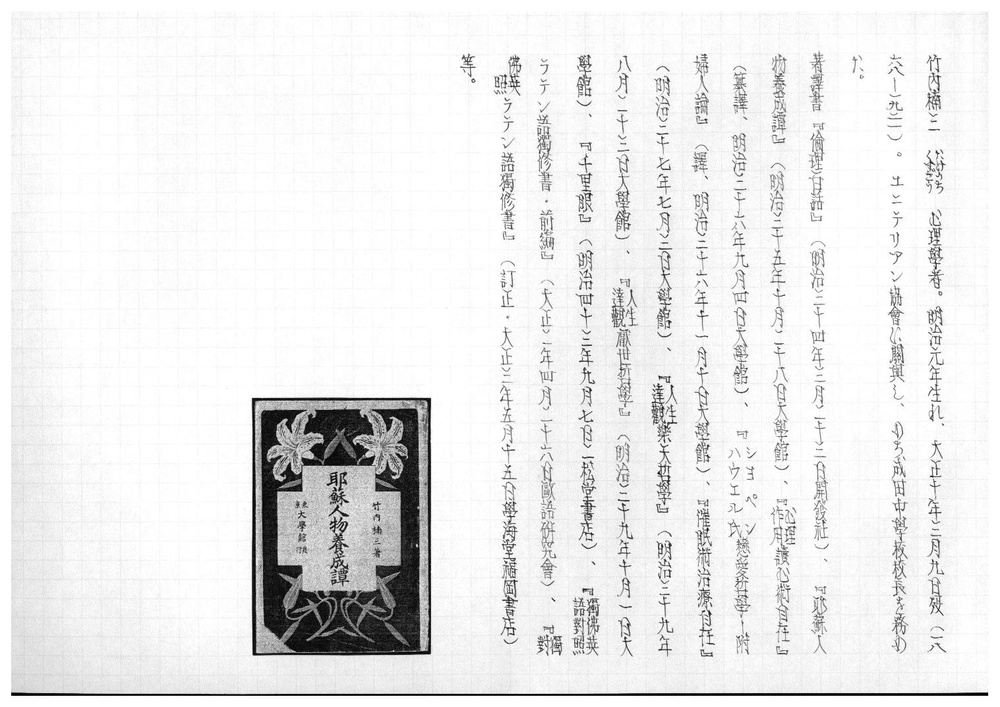 竹内楠三 たけうちくすぞう 心理學者。明治元年生れ、大正十年三月九日歿（一八
六八—一九二一）。ユニテリアン協會に關與し、のち成田中學校校長を務め
た。
著譯書『倫理百話』（明治三十四年三月二十三日開發社）、『耶蘇人
物養成譚』（明治三十五年十月二十八日大學館）、『心理作用讀心術自在』
（纂譯、明治三十六年九月四日大學館）、『ショペンハウエル氏戀愛哲學—附
婦人論』（譯、明治三十六年十一月十日大學館）、『催眠術治療自在』
（明治三十七年七月三日大學館）、『人生達觀樂天哲學』（明治三十九年
八月二十三日大學館）、『人生達觀厭世哲學』（明治三十九年十月一日大
學館）、『千里眼』（明治四十三年九月七日二松堂書店）、『獨佛英語對照
ラテン語獨修書・前編』（大正二年四月二十六日歐語硏究會）、『對獨
佛英照ラテン語獨修書』（訂正・大正三年五月十五日學海堂福岡書店）
等。
竹内楠三著
耶蘇人物養成譚
東京大學館發行